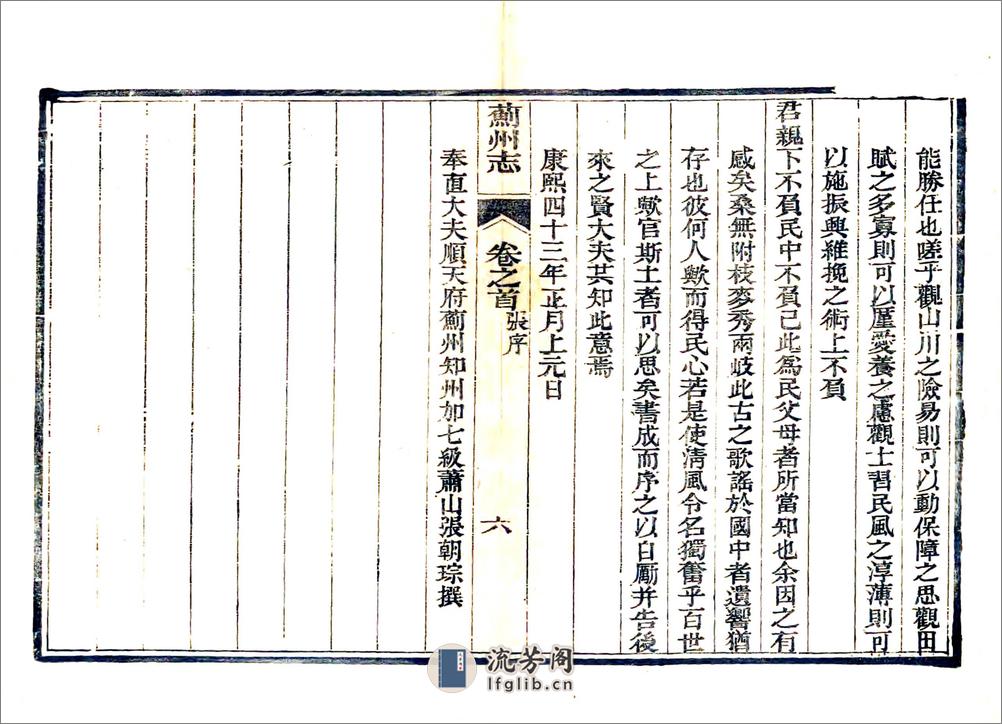 能勝任也嗟乎觀山川之險易則可以動保障之思觀田
賦之多寡則可以厪愛養之慮觀士習民風之淳薄則可
以施振興維挽之術上不負
君親下不負民中不負己此爲民父母者所當知也余因之有
感矣桑無附枝麥秀兩岐此古之歌謠於國中者遺響猶
存也彼何人歟而得民心若是使淸風令名獨奮乎百世
之上歟官斯土者可以思矣書成而序之以自勵并告後
來之賢大夫共知此意焉
康熙四十三年正月上元日
薊州志 卷之首 張序 六
奉直大夫順天府薊州知州加七級蕭山張朝琮撰
流芳阁
lfglib.cn